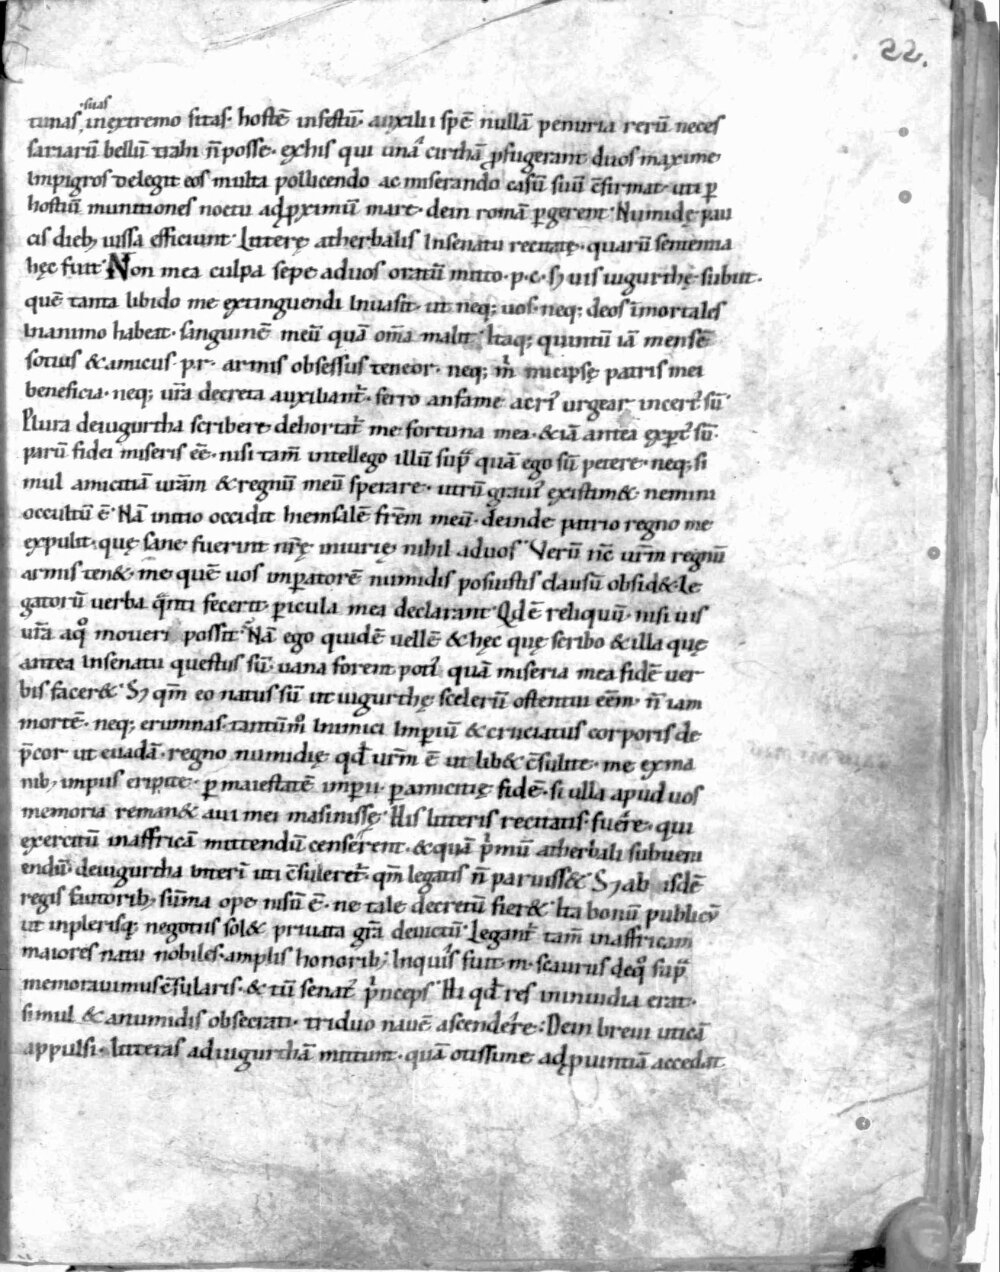 22.
·suas
tunas, inextremo sitas· hostē infestū· auxilii spē nullā penuria rerū neces
sariarū bellū trahi n̄ posse· exhis qui unā cirthā p̱fugerant duos maxime
impigros delegit eos multa pollicendo ac miserando casū suū c̄firmat· uti p̱
hostiū munitiones noctu adp̱ximū mare· dein romā p̱gerent· Numidę pau
cis dieb; iussa efficiunt· Litterę atherbalis Insenatu recitatę· quarū sententia
hęc fuit· Non mea culpa sepe aduos oratū mitto· p·c· S; uis iugurthę subiit·
quē tanta libido me extinguendi inuasit· ut neq; uos· neq; deos īmortales
inanimo habeat· sanguinē meū quā om̄a malit· Itaq; quintū iā mensē
sotius & amicus· p·r· armis obsessus teneor· neq; m̍ micipsę patris mei
beneficia· neq; ur̄a decreta auxiliant̍· ferro anfame acri᷒ urgear incert᷒ sū·
Plura deiugurtha scribere dehortat̍ me fortuna mea· & iā antea exp̱t᷒ sū·
parū fidei miseris eē· nisi tam̄ intellego illū sup̄ quā ego sū petere· neq; si
mul amicitiā ur̄am & regnū meū sperare· utrū graui᷒ existim& nemini
occultū ē· Nā initio occidit hiemsalē fr̄em meū· deinde patrio regno me
expulit· quę sane fuerint nr̄ę iniurię nihil aduos· Verū nc̄ ur̄m regnū
armis ten&· me quē uos imp̱atorē numidis posuistis clausū obsid&· Le
gatorū uerba q̄nti fecerit· p̱icula mea declarant· Qd ē reliquū· nisi uis
ur̄a aqͦ moueri possit· Nā ego quidē uellē & hęc quę scribo & illa quę
antea Insenatu questus sū· uana forent poti᷒ quā miseria mea fidē uer
bis facer&· S; qm̄ eo natus sū ut iugurthę scelerū ostentui eēm· n̄ iam
mortē· neq; erumnas· tantūmͦ inimici Imp̱iū & cruciatus corporis de
p̄cor ut euadā· regno numidię qd ur̄m ē ut lib& c̄sulite· me exma
nib; impiis eripite· p̱ maiestatē imp̱ii· p̱ amicitię fidē· si ulla apud uos
memoria reman& aui mei masinissę· His litteris recitatis· fuēre· qui
exercitū inaffricā mittendū censērent· & quā p̍mū atherbali subueni
endū· deiugurtha interī uti c̄suleret̍· qm̄ legatis n̄ paruiss&· S; ab isdē
regis fautorib; sūma ope nisū ē· ne tale decretū fier&· Ita bonū publicū
ut inplerisq; negotiis sol& priuata gr̄a deuictū· Legant̍ tam̄ inaffricam
maiores natu nobiles· amplis honorib;· Inquis fuit m· scaurus deqͦ sup̄
memorauimus c̄sularis· & tū senat᷒ p̍nceps· Hi qd res ininuidia erat·
simul & anumidis obsecrati· triduo nauē ascendēre· Dein breui uticā
appulsi· litteras adiugurthā mittunt· quā otissime adp̱uintiā accedat